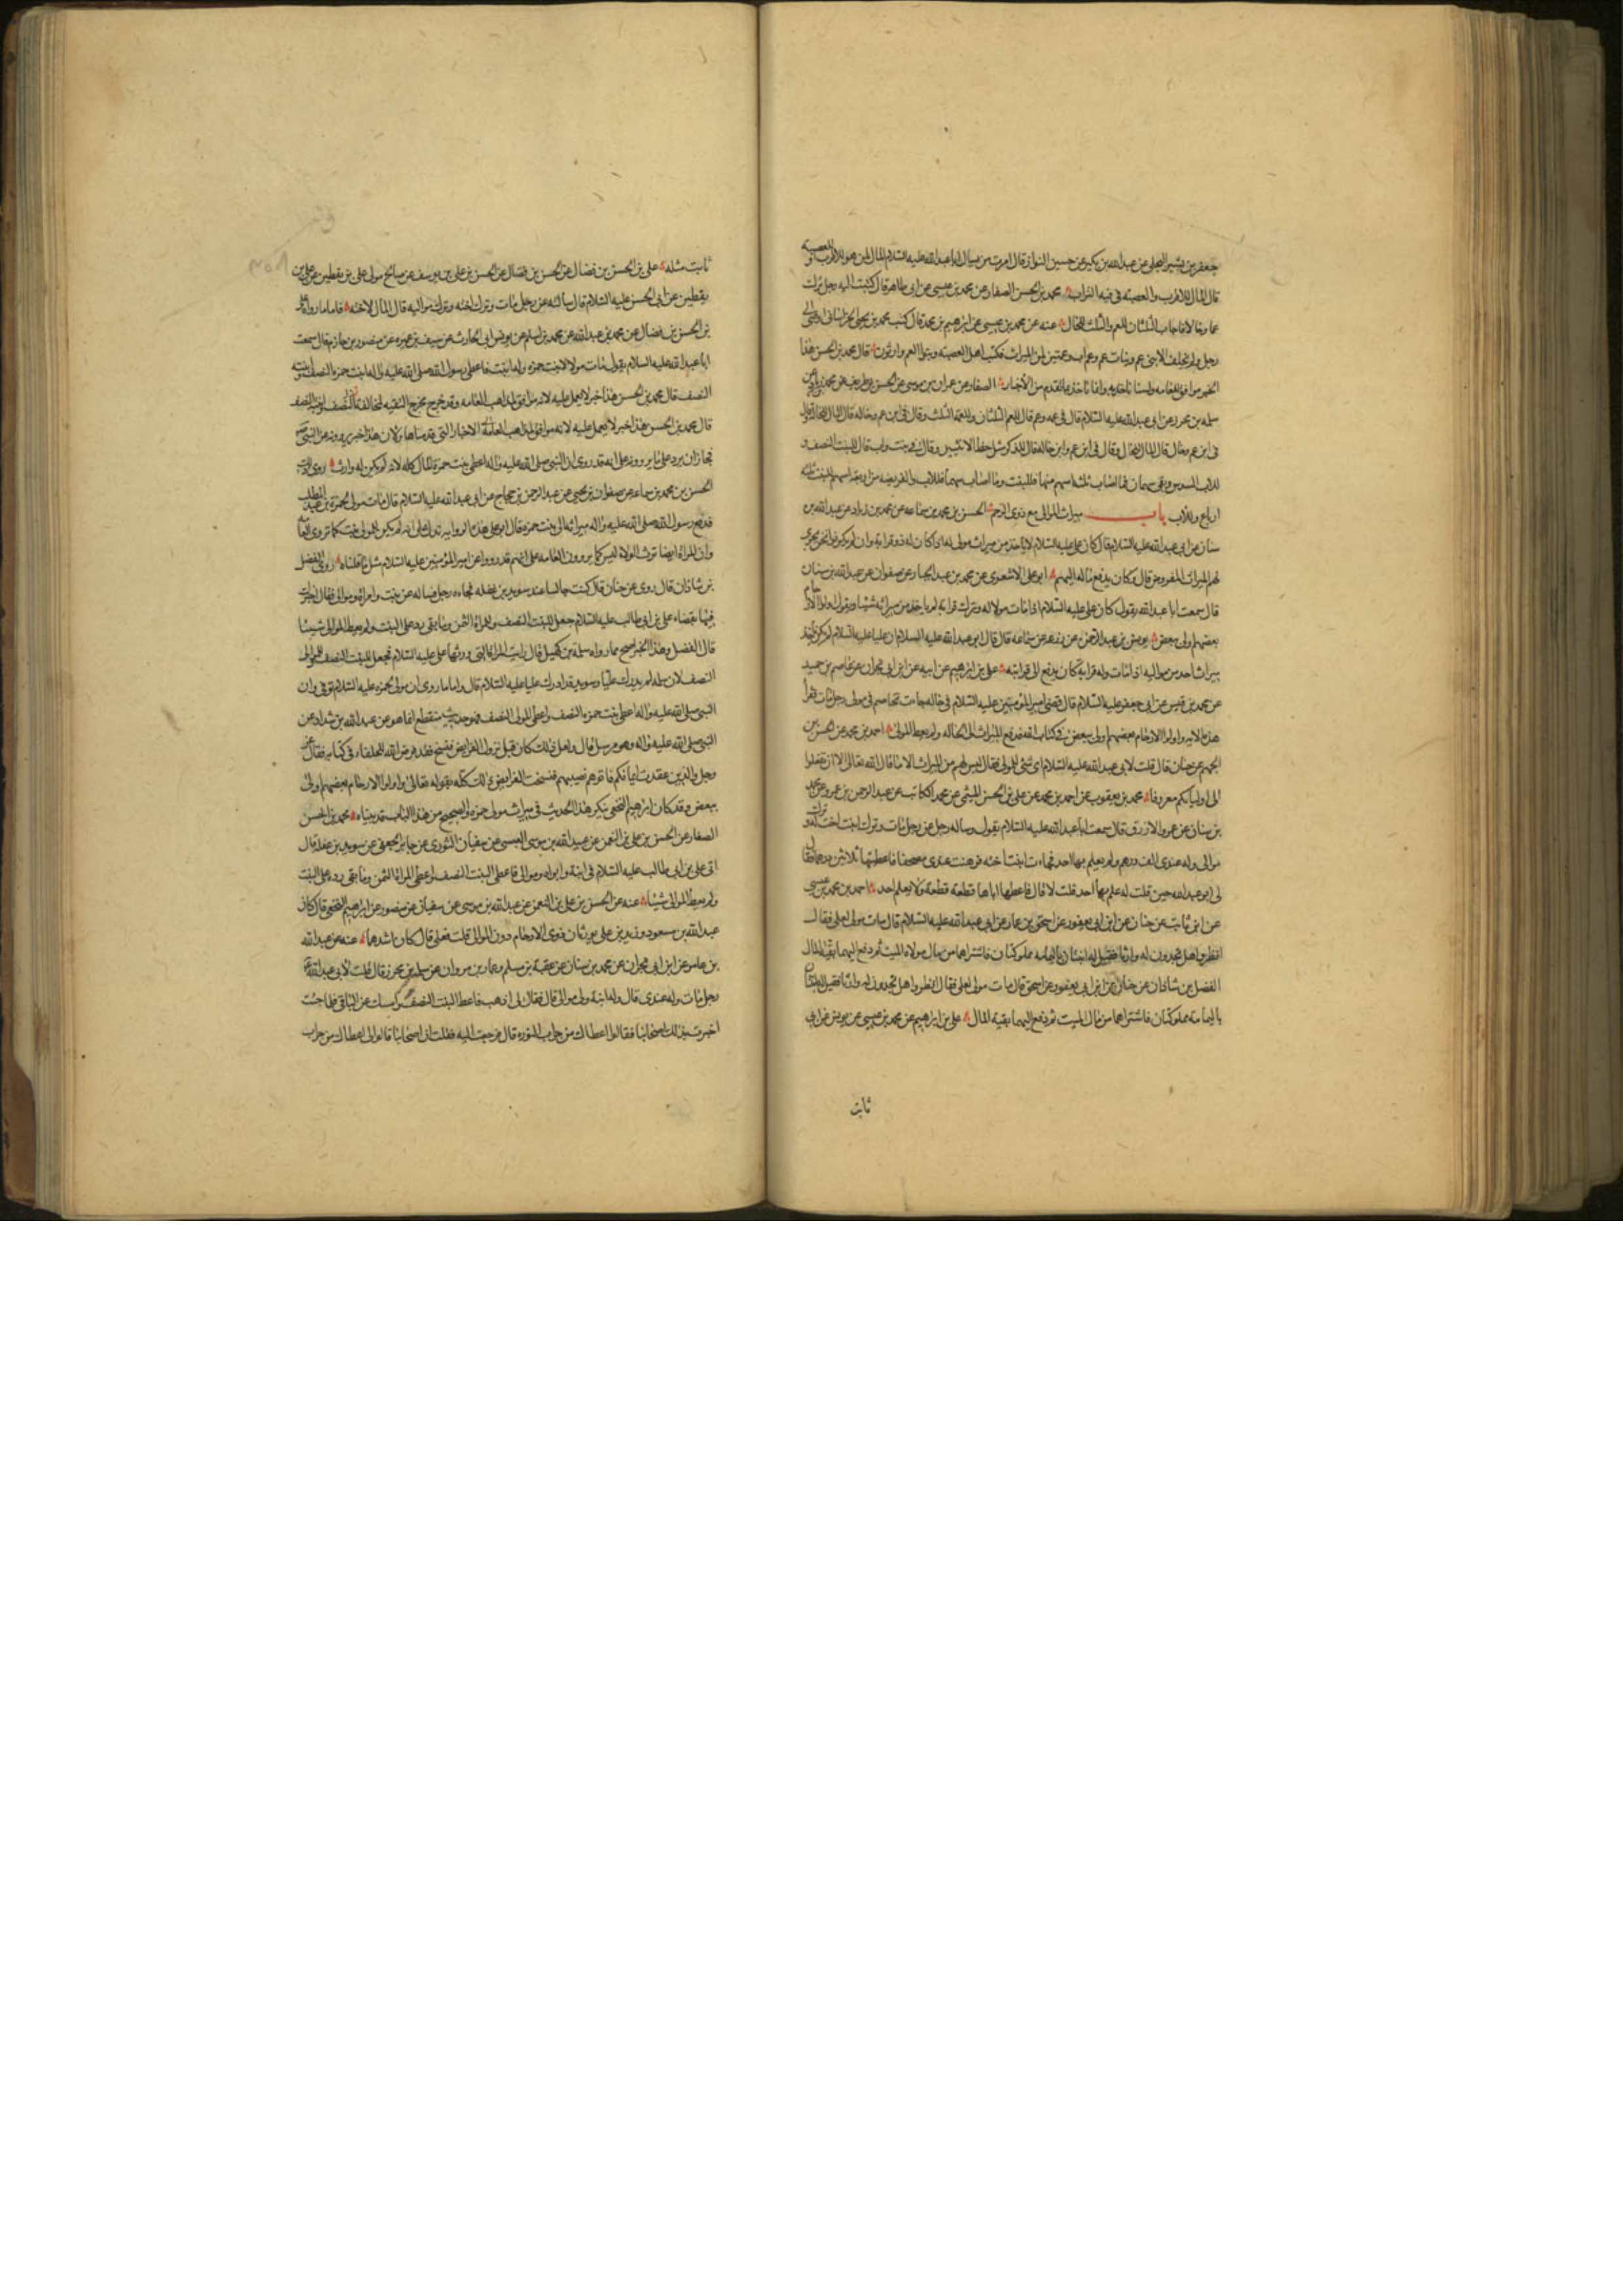 جعفر بن بشير البجلي عن عبد الله بن بكير عن حسين البزاز قال امرت من يسال ابا عبد الله عليه السلام المال لمن هو للاقرب او للعصبه
قال المال للاقرب والعصبه في فيه التراب محمد بن الحسن الصفار عن محمد بن عيسى عن ابي طاهر قال كتبت اليه رجل ترك
عما وخالا فاجاب الثلثان للعم والثلث للخال عنه عن محمد بن عيسى عن ابراهيم بن محمد قال كتب محمد بن يحيى الخراساني اوصى الى
رجل ولم يخلف الا بني عم وبنات عم وعم اب وعمتين لمن الميراث فكتب اهل العصبه وبنوا العم وارثون قال محمد بن الحسن هذا
الخبر موافق للعامه ولسنا ناخذ به وانما ناخذ بما تقدم من الاخبار الصفار عن عمران بن موسى عن الحسن بن ظريف عن محمد بن زياد عن
سلمه بن محرز عن ابي عبد الله عليه السلام قال في عمه وعم قال للعم الثلثان وللعمة الثلث وقال في ابن عم وخاله قال المال للخاله وقال
في ابن عم وخال قال المال للخال وقال في ابن عم وابن خاله قال للذكر مثل حظ الانثيين وقال في بنت واب قال للبنت النصف و
للاب السدس وبقي سهمان فما اصاب ثلثه اسهم منها فللبنت وما اصاب سهما فللاب والفريضه من اربعه اسهم للبنت ثلثه
ارباع وللاب باب ميراث الموالى مع ذوي الرحم الحسن بن محمد بن سماعه عن محمد بن زياد عن عبد الله بن
سنان عن ابي عبد الله عليه السلام قال كان علي عليه السلام لا ياخذ من ميراث مولى له اذا كان له ذو قرابه وان لم يكونوا ممن يجري
لهم الميراث المفروض قال وكان يدفع ماله اليهم ابو على الاشعري عن محمد بن عبد الجبار عن صفوان عن عبد الله بن سنان
قال سمعت ابا عبد الله يقول كان على عليه السلام اذا مات مولا له وترك قرابة لم ياخذ من ميراثه شيئا ويقول واولوا الارحام
بعضهم اولى ببعض يونس بن عبد الرحمن عن زرعه عن سماعه قال قال ابو عبد الله عليه السلام ان عليا عليه السلام لم يكن ياخذ
ميراث احد من مواليه اذا مات وله قرابة كان يدفع الى قرابته على بن ابراهيم عن ابيه عن ابن ابي نجران عن عاصم بن حميد
عن محمد بن قيس عن ابي جعفر عليه السلام قال قضى امير المؤمنين عليه السلام في خاله جاءت تخاصم في مولى رجل مات فقرا
هذه الايه واولوا الارحام بعضهم اولى ببعض في كتاب الله فدفع الميراث الى الخاله ولم يعط المولى احمد بن محمد عن الحسن بن
الجهم عن حنان قال قلت لابي عبد الله عليه السلام اي شئ للمولى فقال ليس لهم من الميراث الا ما قال الله تعالى الا ان تفعلوا
الى اوليائكم معروفا محمد بن يعقوب عن احمد بن محمد عن على بن الحسن الميثمي عن محمد الكاتب عن عبد الرحمن بن عمرو عن محمد
بن سنان عن عمرو الازرق قال سمعت ابا عبد الله عليه السلام يقول وساله رجل عن رجل مات وترك ابنت اخت له وترك
موالى وله عندي الف درهم ولم يعلم بها احد فجاءت ابنة اخته فرهنت عندي مصحفا فاعطيتها ثلاثين درهما فقال
لي ابو عبد الله حين قلت له علم بها احد قلت لا قال فاعطها اياها قطعة قطعة ولا يعلم احد احمد بن محمد بن عيسى
عن ابن ثابت عن حنان عن ابن ابي يعفور عن اسحق بن عمار عن ابي عبد الله عليه السلام قال مات مولى لعلى فقال
انظروا هل تجدون له وارثا فقيل له ابنتان باليمامه مملوكتان فاشتراهما من مال مولاه الميت ثم دفع اليهما بقية المال
الفضل بن شاذان عن حنان عن ابن ابي يعفور عن اسحق قال مات مولى لعلى فقال انظروا هل تجدون له وارثا فقيل له ابنتان
باليمامة مملوكتان فاشتراهما من مال الميت ثم دفع اليهما بقية المال على بن ابراهيم عن محمد بن عيسى عن يونس عن ابي
ثابت
ثابت مثله على بن الحسن بن فضال عن الحسن بن على بن يوسف عن صالح مولى على بن يقطين عن على بن
يقطين عن ابي الحسن عليه السلام قال سالته عن رجل مات وترك اخته وترك مواليه قال المال لاخته فاما ما رواه على
بن الحسن بن فضال عن محمد بن عبد الله عن محمد بن اسلم عن يونس ابي الحارث عن سيف بن عميره عن منصور بن حازم قال سمعت
ابا عبد الله عليه السلام يقول مات مولا لابنت حمزه وله ابنت فاعطى رسول الله صلى الله عليه واله ابنت حمزه النصف وابنته
النصف قال محمد بن الحسن هذا خبر لا يعمل عليه لانه موافق لمذاهب العامه وقد خرج مخرج التقيه
قال محمد بن الحسن هذا خبر لا يعمل عليه لانه موافق لمذاهب العامه الاخبار التي قدمناها ولان هذا خبر يروونه عن النبي
فجاز ان يرد على ما يروونه على انه قد روي ان النبي صلى الله عليه واله اعطى بنت حمزة المال كله لانه لم يكن له وارث روى ذلك
الحسن بن محمد بن سماعه عن صفوان بن يحيى عن عبد الرحمن بن حجاج عن ابي عبد الله عليه السلام قال مات مولى لحمزة بن عبد المطلب
فدفع رسول الله صلى الله عليه واله ميراثه الى بنت حمزه قال ابو على هذه الروايه تدل على انه لم يكن للمولى بنت كما تروى العامه
وان المراة ايضا ترث الولاء ليس كما يروون العامه على انهم قد رووا عن امير المؤمنين عليه السلام مثل ما قلناه روى الفضل
بن شاذان قال روى عن حنان قال كنت جالسا عند سويد بن غفله فجاءه رجل فساله عن بنت وامراة وموالى فقال اخبرك
فيها بقضاء على بن ابي طالب عليه السلام جعل للبنت النصف وللمراة الثمن وما بقى رد على البنت ولم يعط الموالى شيئا
قال الفضل وهذا الخبر اصح مما رواه سلمة بن كهيل قال رايت المراة التى ورثها على عليه السلام فجعل للبنت النصف وللموالى
النصف لان سلمه لم يدرك عليا وسويد قد ادرك عليا عليه السلام قال واما ما روى ان مولى لحمزه عليه السلام توفى وان
النبي صلى الله عليه واله اعطى بنت حمزه النصف واعطى الموالى النصف فهو حديث منقطع انما هو عن عبد الله بن شداد عن
النبي صلى الله عليه واله وهو مرسل قال ولعل ذلك كان قبل نزول الفرايض فنسخ فقد فرض الله للحلفاء في كتابه فقال عز
وجل والذين عقدت ايمانكم فاتوهم نصيبهم فنسخت الفرايض ذلك كله بقوله تعالى واولوا الارحام بعضهم اولى
ببعض وقد كان ابراهيم النخعي ينكر هذا الحديث في ميراث مولى حمزه والصحيح من هذا الباب قد بيناه محمد بن الحسن
الصفار عن الحسن بن على بن النعمن عن عبيد الله بن موسى العبسي عن سفيان الثوري عن جابر الجعفي عن سويد بن غفلة قال
اتى على بن ابي طالب عليه السلام في ابنة وامراه وموالى فاعطى البنت النصف واعطى المراة الثمن وما بقى رده على البنت
ولم يعط الموالى شيئا عنه عن الحسن بن على بن النعمن عن عبد الله بن موسى عن سفيان عن منصور عن ابراهيم النخعي قال كان
عبد الله بن مسعود وزيد بن على يورثان ذوى الارحام دون الموالى قلت فعلى قال كان اشدهما عنه عن عبد الله
بن عامر عن ابن ابي نجران عن محمد بن سنان عن عقبة بن مسلم وعمار بن مروان عن سلمة بن محرز قال قلت لابي عبد الله
رجل مات وله عندي قال وله ابنة ولي موالى قال فقال لى اذهب فاعط البنت النصف وامسك عن الباقي فلما جئت
اخبرت بذلك اصحابنا فقالوا اعطاك من جراب النوره قال فرجعت اليه فقلت ان اصحابنا قالوا لى اعطاك من جراب